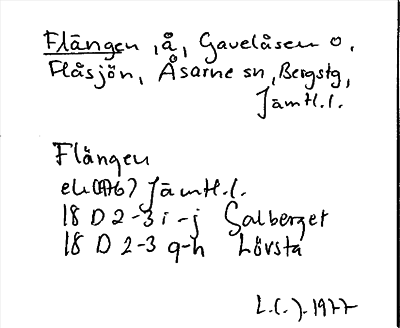 Flängen, å, Gaveløsen o.
Flåsjön, Åsarne sn, Bergstg,
Jämtl.l.
Flängen
Jämtl.l.
18 D 2-3 i-j Galberget
18 D 2-3 g-h Lövsta
1977